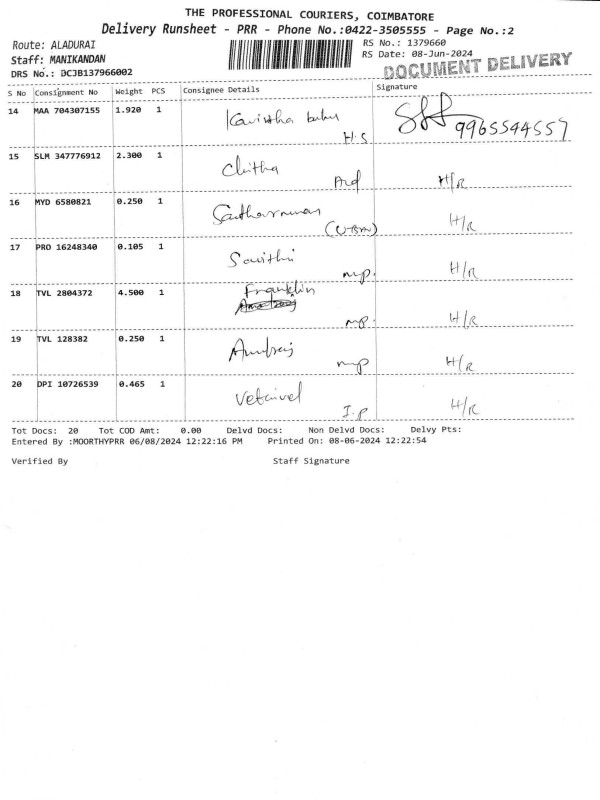 THE PROFESSIONAL COURIERS, COIMBATORE
Delivery Runsheet - PRR - Phone No.:0422-3505555 - Page No.:2
Route: ALADURAI
Staff: MANIKANDAN
DRS No.: DCJB137966002
RS No.: 1379660
RS Date: 08-Jun-2024
DOCUMENT DELIVERY
S No Consignment No Weight PCS Consignee Details Signature
14 MAA 704307155 1.920 1 Kavitha babu H.S 9965544557
15 SLM 347776912 2.300 1 Chitha H/R
16 MYD 6580821 0.250 1 H/R
17 PRO 16248340 0.105 1 Savithri mp. H/R
18 TVL 2804372 4.500 1 Franklin mp. H/R
19 TVL 128382 0.250 1 mp H/R
20 DPI 10726539 0.465 1 Vetrivel I.P H/R
Tot Docs: 20 Tot COD Amt: 0.00 Delvd Docs: Non Delvd Docs: Delvy Pts:
Entered By :MOORTHYPRR 06/08/2024 12:22:16 PM Printed On: 08-06-2024 12:22:54
Verified By Staff Signature